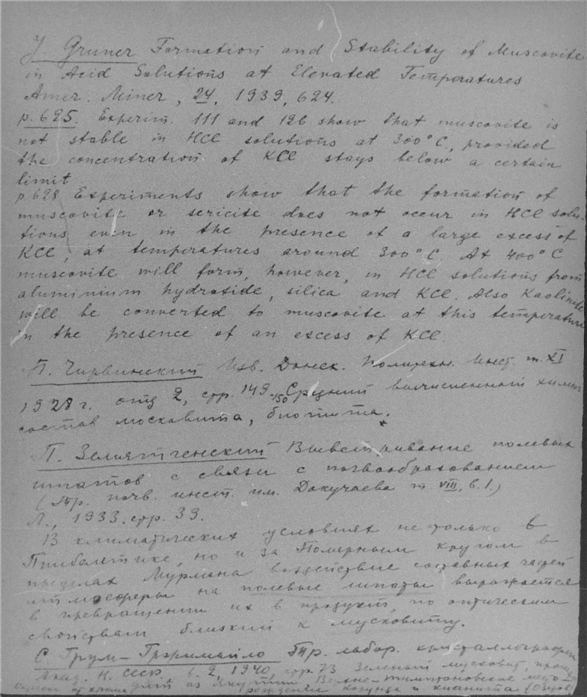 J. Gruner Formation and Stability of Muscovite
in Acid Solutions at Elevated Temperatures
Amer. Miner, 24, 1939, 624.
p. 625. Experim. 111 and 126 show that muscovite is
not stable in HCl solutions at 300°C, provided
the concentration of KCl stays below a certain
limit
p 628 Experiments show that the formation of
muscovite or sericite does not occur in HCl solu-
tions even in the presence of a large excess of
KCl, at temperatures around 300°C. At 400°C
muscovite will form, however, in HCl solutions from
aluminium hydroxide, silica and KCl. Also Kaolinite
will be converted to muscovite at this temperature
in the presence of an excess of KCl.
П. Чирвинский Изв. Донск. Политехн. Инст. т. XI
1928 г. отд 2, стр. 149-150 Средний вычисленный химич
состав московита, биотита.
П. Земятченский Выветривание полевых
шпатов в связи с почвообразованием
(Тр. почв. инст. им. Докучаева т VIII, в. 1.)
Л., 1933. стр. 39.
В климатических условиях не только в
Прибалтике, но и за Полярным кругом в
пределах Мурмана воздействие составных частей
атмосферы на полевые шпаты выражается
в превращении их в продукт, по оптическим
свойствам близкий к мусковиту.
С. Грум-Гржимайло Тр. лабор. кристаллографии
Акад. Н. СССР в. 2, 1940, стр 23 Зеленый мусковит,